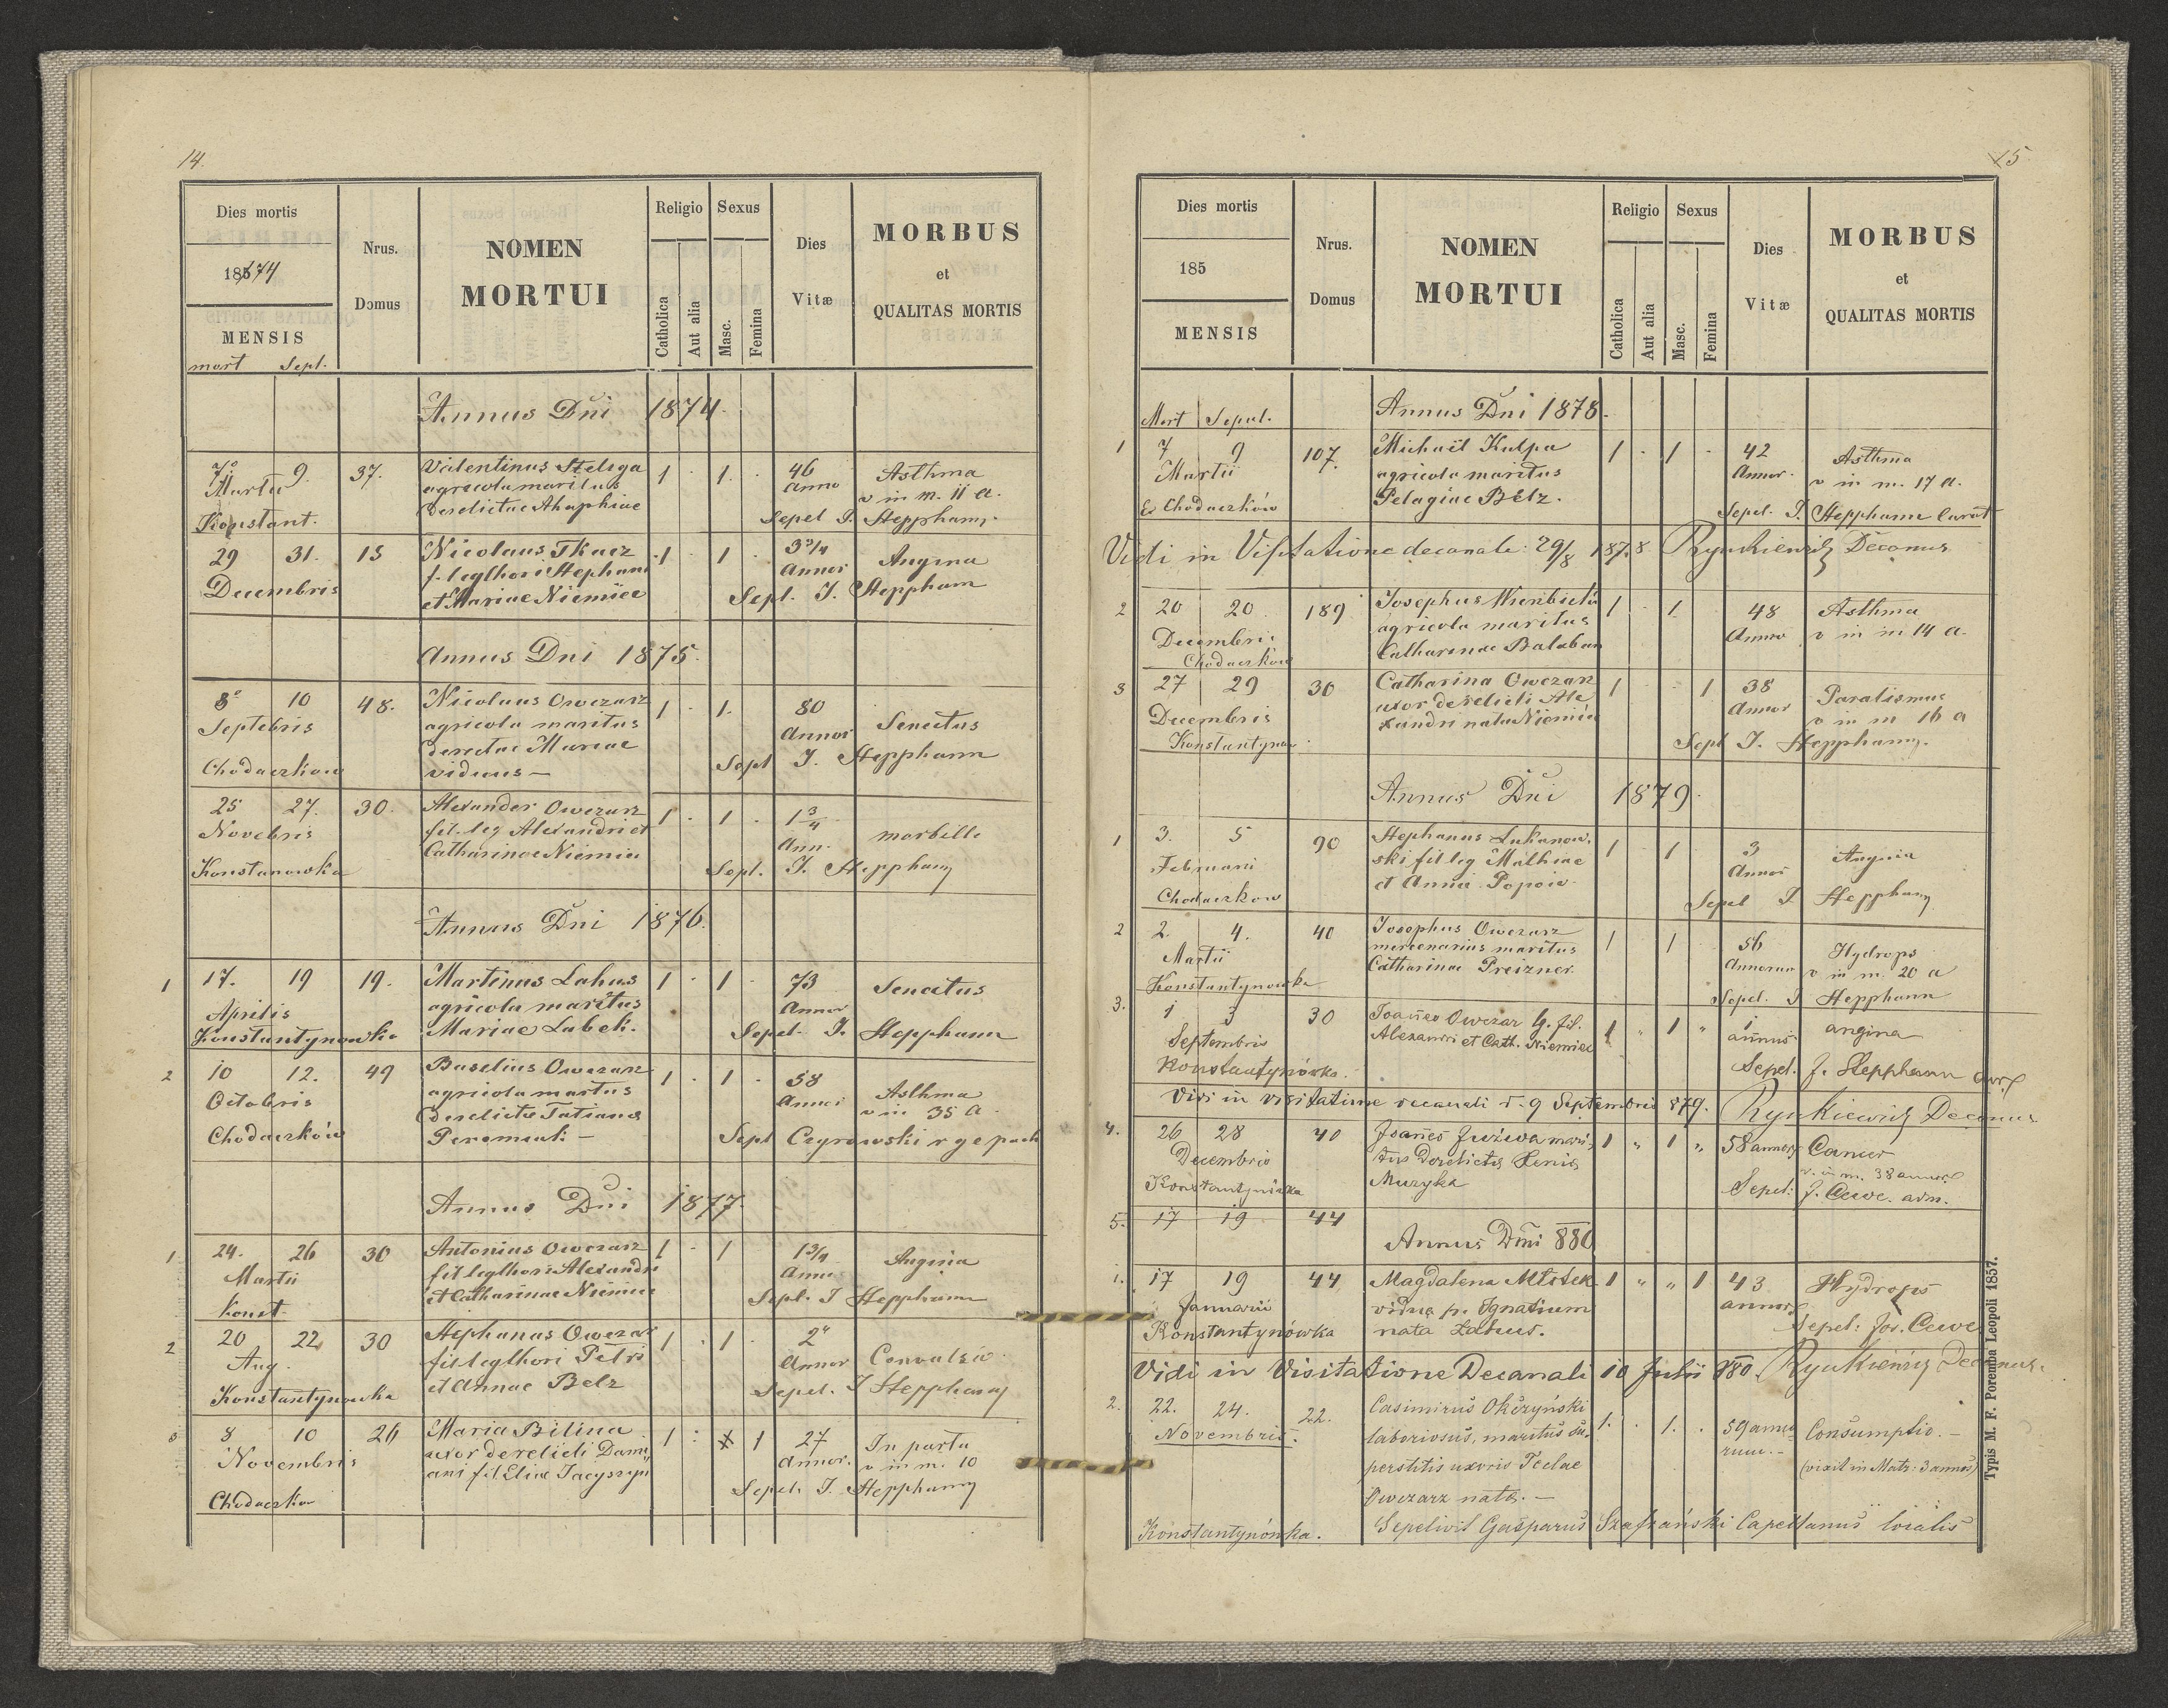 14.
Dies mortis
Nrus.
Domus
NOMEN
MORTUI
Religio
Sexus
Catholica
Aut alia
Masc.
Femina
Dies
Vitæ
MORBUS
et
QUALITAS MORTIS
1874
MENSIS
mort Sepl.
Annus Dni 1874.
7 9. 37. Valentinus Steliga 1 · 1. · 46 Asthma
Martii agricola maritus Anno v in m. 11 a.
Konstant. derelictae Ahaphiae Sepel J. Stepphany.
29 31. 15 Nicolaus Tkacz 1 1 · 3 3/4 Angina
f. leg thori Stephani Annor
Decembris et Mariae Niemiec Sepl. J. Stepphan
Annus Dni 1875.
8 10 48. Nicolaus Owczarz 1 · 1. 80 Senectus
Septebris agricola maritus Annor
derectae Mariae
Chodaczkow viduus — Sepl J. Stepphann
25 27. 30. Alexander Owczarz 1 · 1 · 1 3/4 morbilli
Novebris fil. leg Alexandri et Ann.
Catharinae Niemiec
Konstanowska Sepl. J. Stepphany
Annus Dni 1876.
1 17. 19 19. Martinus Lahus 1 · 1 · 73 Senectus
Aprilis agricola maritus Annor
Konstantynowka Mariae Labek. Sepel. J. Stepphann
2 10 12. 49 Baselius Owczarz 1 · 1 · 58 Asthma
Octobris agricola martus Annor v in 35 a.
derelictae Tatianae
Chodaczków Sepl Czyrowski r g c paroch
Annus Dni 1877.
1. 24. 26 30 Antonius Owczarz 1 · 1 1 3/4 Angina
Martii fil leg thori Alexandri Anni
Konst. et Catharinae Niemiec Sepl. J Stepphann
2 20 22 30 Stephanus Owczar 1 · 1 · 2 Convulsio
Aug. fil leg thori Petri Annor
Konstantynowka et Annae Belz Sepel. J Stepphany
3 8 10 26 Maria Bilina 1 : 1 27 In partu
Novembris uxor derelicti Dami Annor. v in m. 10
ani fil Eliae
Chodaczko Sepel. J. Stepphany
15
Dies mortis
185
MENSIS
Nrus.
Domus
NOMEN
MORTUI
Religio
Sexus
Catholica
Aut alia
Masc.
Femina
Dies
Vitæ
MORBUS
et
QUALITAS MORTIS
Mort Sepul. Annus Dni 1878.
1 7 9 107. Michaël Kulpa 1 · 1 · 42 Asthma
Martii agricola maritus Annor. v in m. 17 a.
Chodaczków Pelagiae Bełz. Sepel. J. Stepphann Curat
Vidi in Visitatione decanali: 29/8 1878 Rynkiewicz Decanus
2 20 20 189 Josephus 1 · 1. 48 Asthma
Decembris agricola maritus Annor v in m 14 a.
Chodaczkow Catharinae Balaban
3 27 29 30 Catharina Owczarz 1 · · 1 38 Paralismus
uxor derelicti Ale Annor v in m 16 a
Decembris xandri nata Niemiec
Konstantynow Sepl J. Stepphany.
Annus Dni 1879.
1 3. 5 90 Stephanus Lukanow. 1 · 1 3 Angina
Februarii ski fil leg Mathiae Annor
Chodaczkow et Annae Popoio Sepel J Stepphany
2 2. 4. 40 Josephus Owczarz 1 1 56 Hydrops
Martii mercenarius maritus Annorum v in m. 20 a
Konstantynowka Catharinae Preizner. Sepel. J Stepphann
3. 1 3 30 Joañes Owczar lg. fil. 1 " 1 " 1 angina
Septembris Alexandri et Cath. Niemiec annus
Konstantynówka. Sepel. J. Stepphann
Vidi in visitatione decanali d. 9 Septembris 879. Rynkiewicz Decanus
4. 26 28 40 Joañes Juziwa mari, 1 " 1 " 58 annor. Cancer
Decembris tus derelictae Xeniae v. in m. 38 annor.
Konstantynówka Muzyka Sepel: J. Cewe. adm.
5. 17 19 44
Annus Dñi 880
1. 17 19 44 Magdalena Mistek 1 " " 1 43 Hydrops
Januarii vidua p. Ignatium annor.
Konstantynówka nata Łahus. Sepel: Jos. Cewe
Vidi in Visitatione Decanali 10 Julii 880. Rynkiewicz Decanus.
2. 22. 24. 22. Casimirus Okszyński 1. · 1. · 59 anno Consumptio. —
Novembris. laboriosus, maritus su, rum. —
perstitis uxoris Teclae (vixit in Matr: 3 annos)
Owczarz nata. —
Konstantynówka. Sepelivit Gasparus Szafrański Capellanus localis
Typis M. F. Poremba Leopoli 1857.